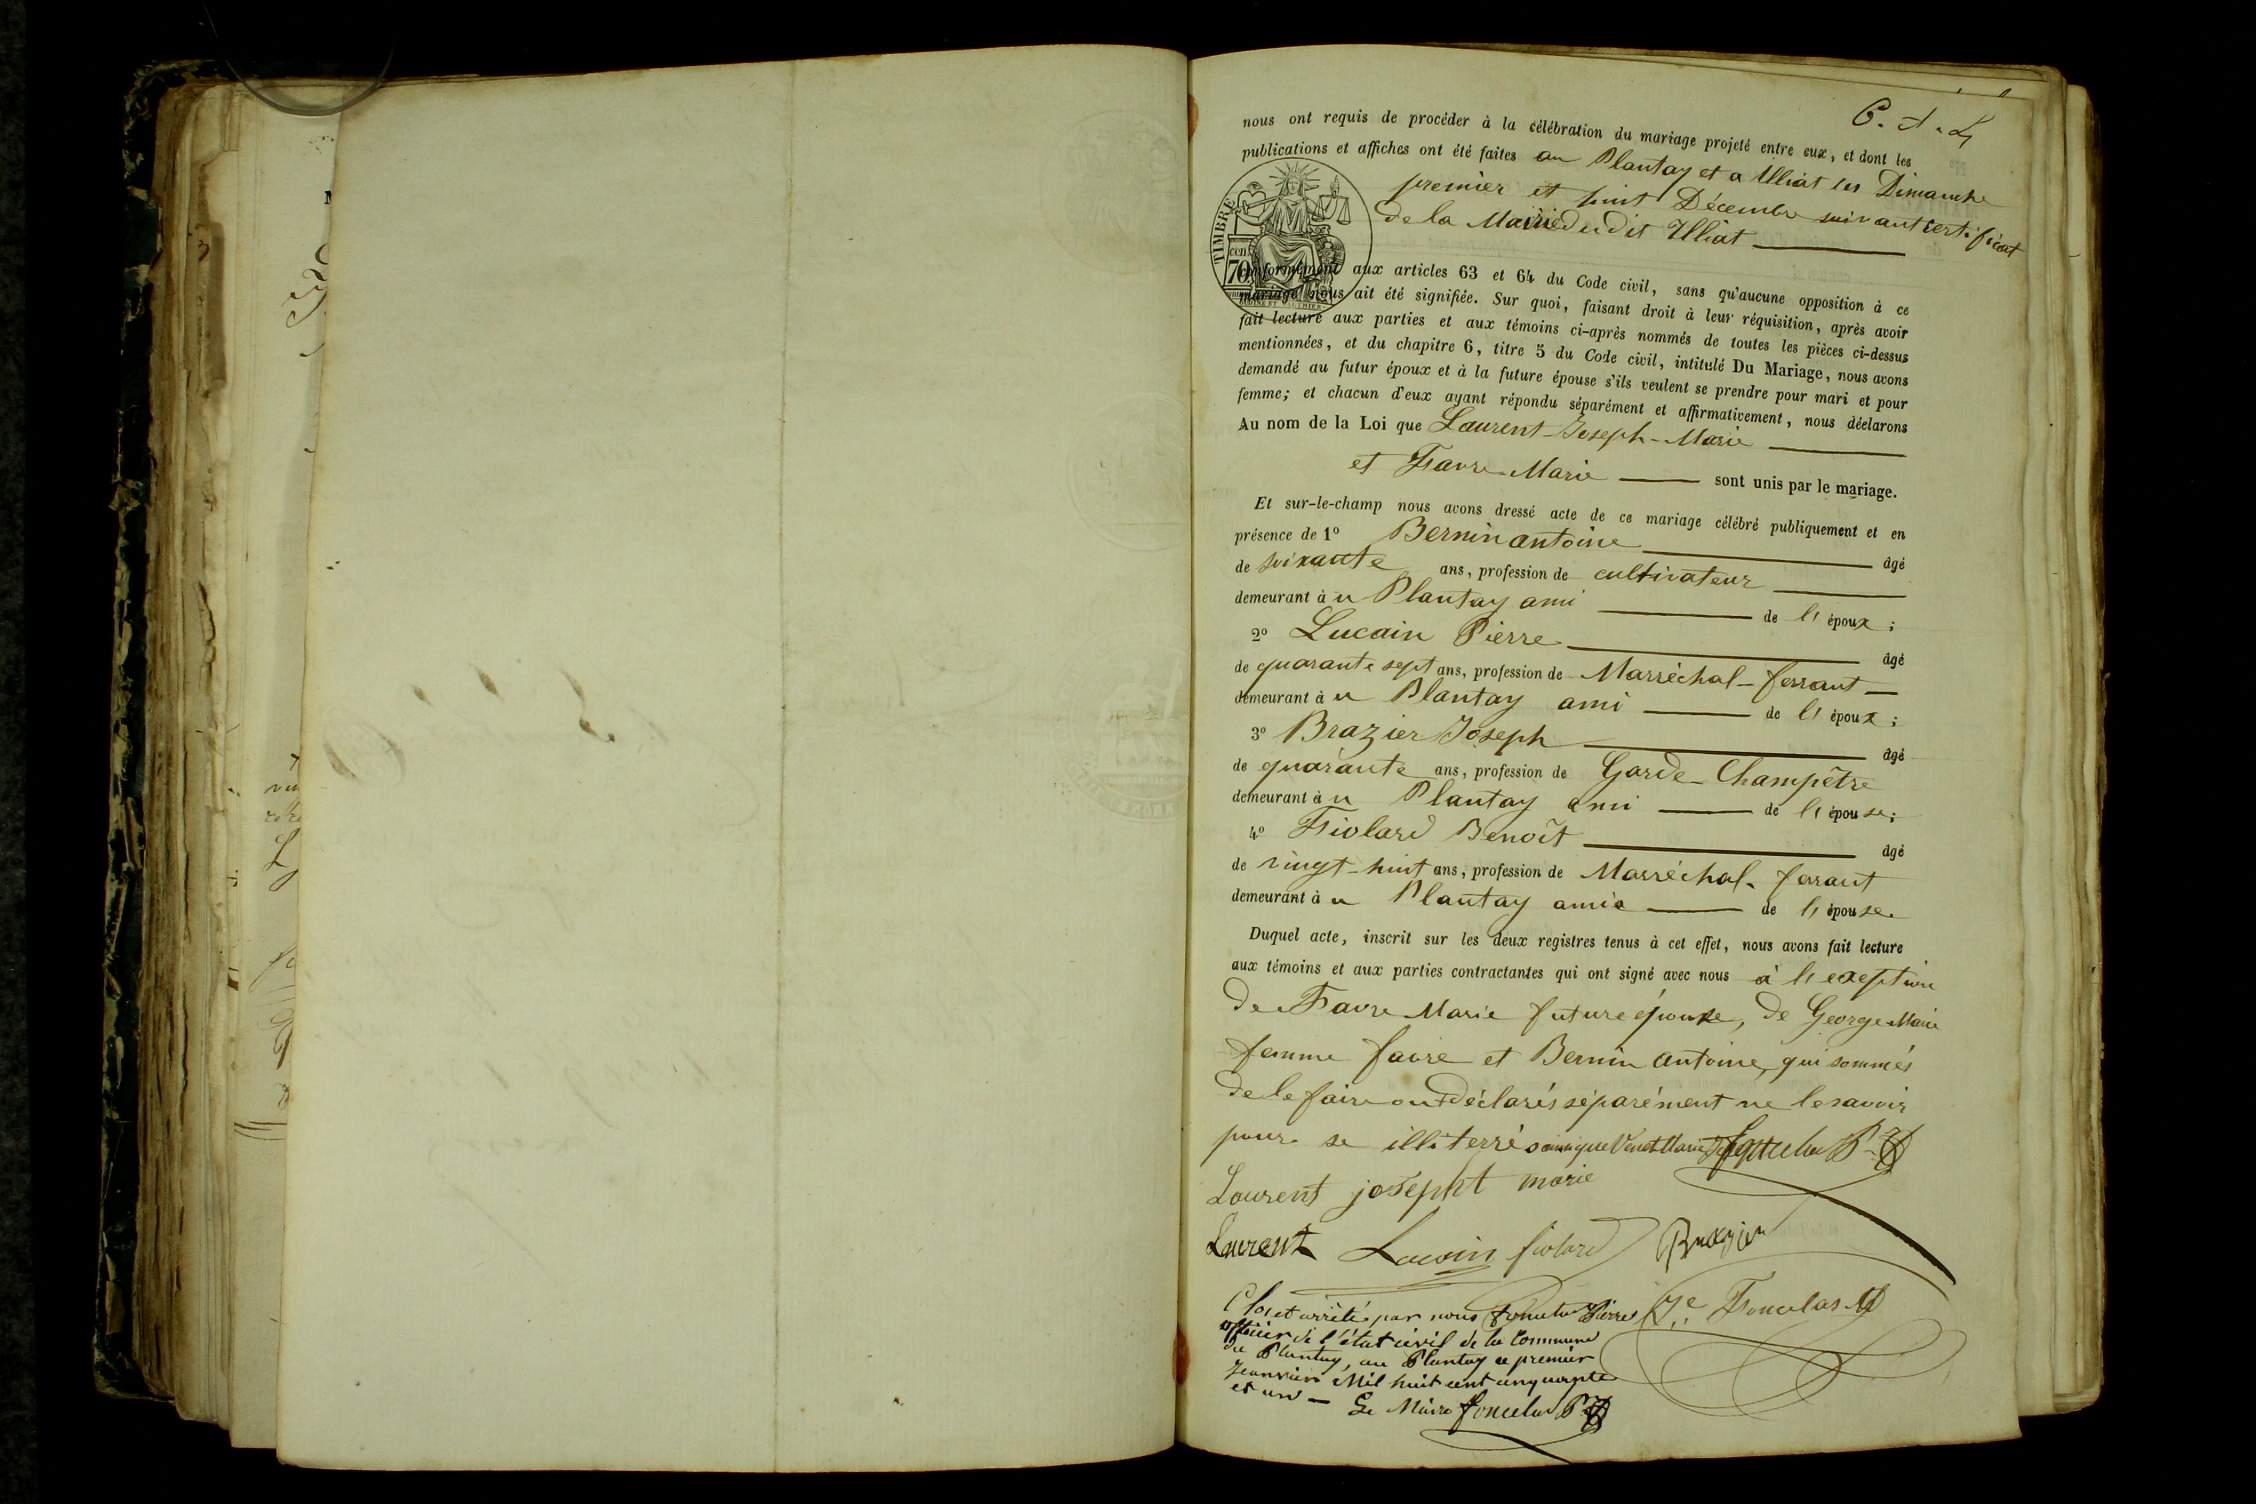 6.
nous ont requis de procéder à la célébration du mariage projeté entre eux, et dont les
publications et affiches ont été faites au Plantay et a Illiat les Dimanche
premier et huit Décembre suivant certificat
de la Mairie du dit Illiat
TIMBRE
cen.
70
conformément aux articles 63 et 64 du Code civil, sans qu'aucune opposition à ce
mariage nous ait été signifiée. Sur quoi, faisant droit à leur réquisition, après avoir
fait lecture aux parties et aux témoins ci-après nommés de toutes les pièces ci-dessus
mentionnées, et du chapitre 6, titre 5 du Code civil, intitulé Du Mariage, nous avons
demandé au futur époux et à la future épouse s'ils veulent se prendre pour mari et pour
femme; et chacun d'eux ayant répondu séparément et affirmativement, nous déclarons
Au nom de la Loi que Laurent-Joseph-Marie
et Favre Marie sont unis par le mariage.
Et sur-le-champ nous avons dressé acte de ce mariage célébré publiquement et en
présence de 1º Bernin antoine âgé
de soixante ans, profession de cultivateur
demeurant à u Plantay ami de l'époux;
2º Lucain Pierre âgé
de quarante sept ans, profession de Marréchal-ferrant
demeurant à u Plantay ami de l'époux;
3º Brazier Joseph âgé
de quarante ans, profession de Garde-Champêtre
demeurant à u Plantay ami de l'épouse;
4º Fiolard Benoît âgé
de vingt-huit ans, profession de Marréchal-feraut
demeurant à u Plantay amie de l'épouse.
Duquel acte, inscrit sur les deux registres tenus à cet effet, nous avons fait lecture
aux témoins et aux parties contractantes qui ont signé avec nous à l'exeption
de Favre Marie future épouse, de George Marie
femme favre et Bernin antoine, qui sommés
de le faire ont déclarés séparément ne le savoir
pour se illiterré
Laurent josepht marie
Laurent Lucain fiolard Brazier
Clos et arrêté par nous Foncelas Pierre Je Foncelas
officier de l'état civil de la Commune
du Plantay, au Plantay ce premier
Jeanvier Mil huit cent cinquante
et un — Le Maire foncelas P